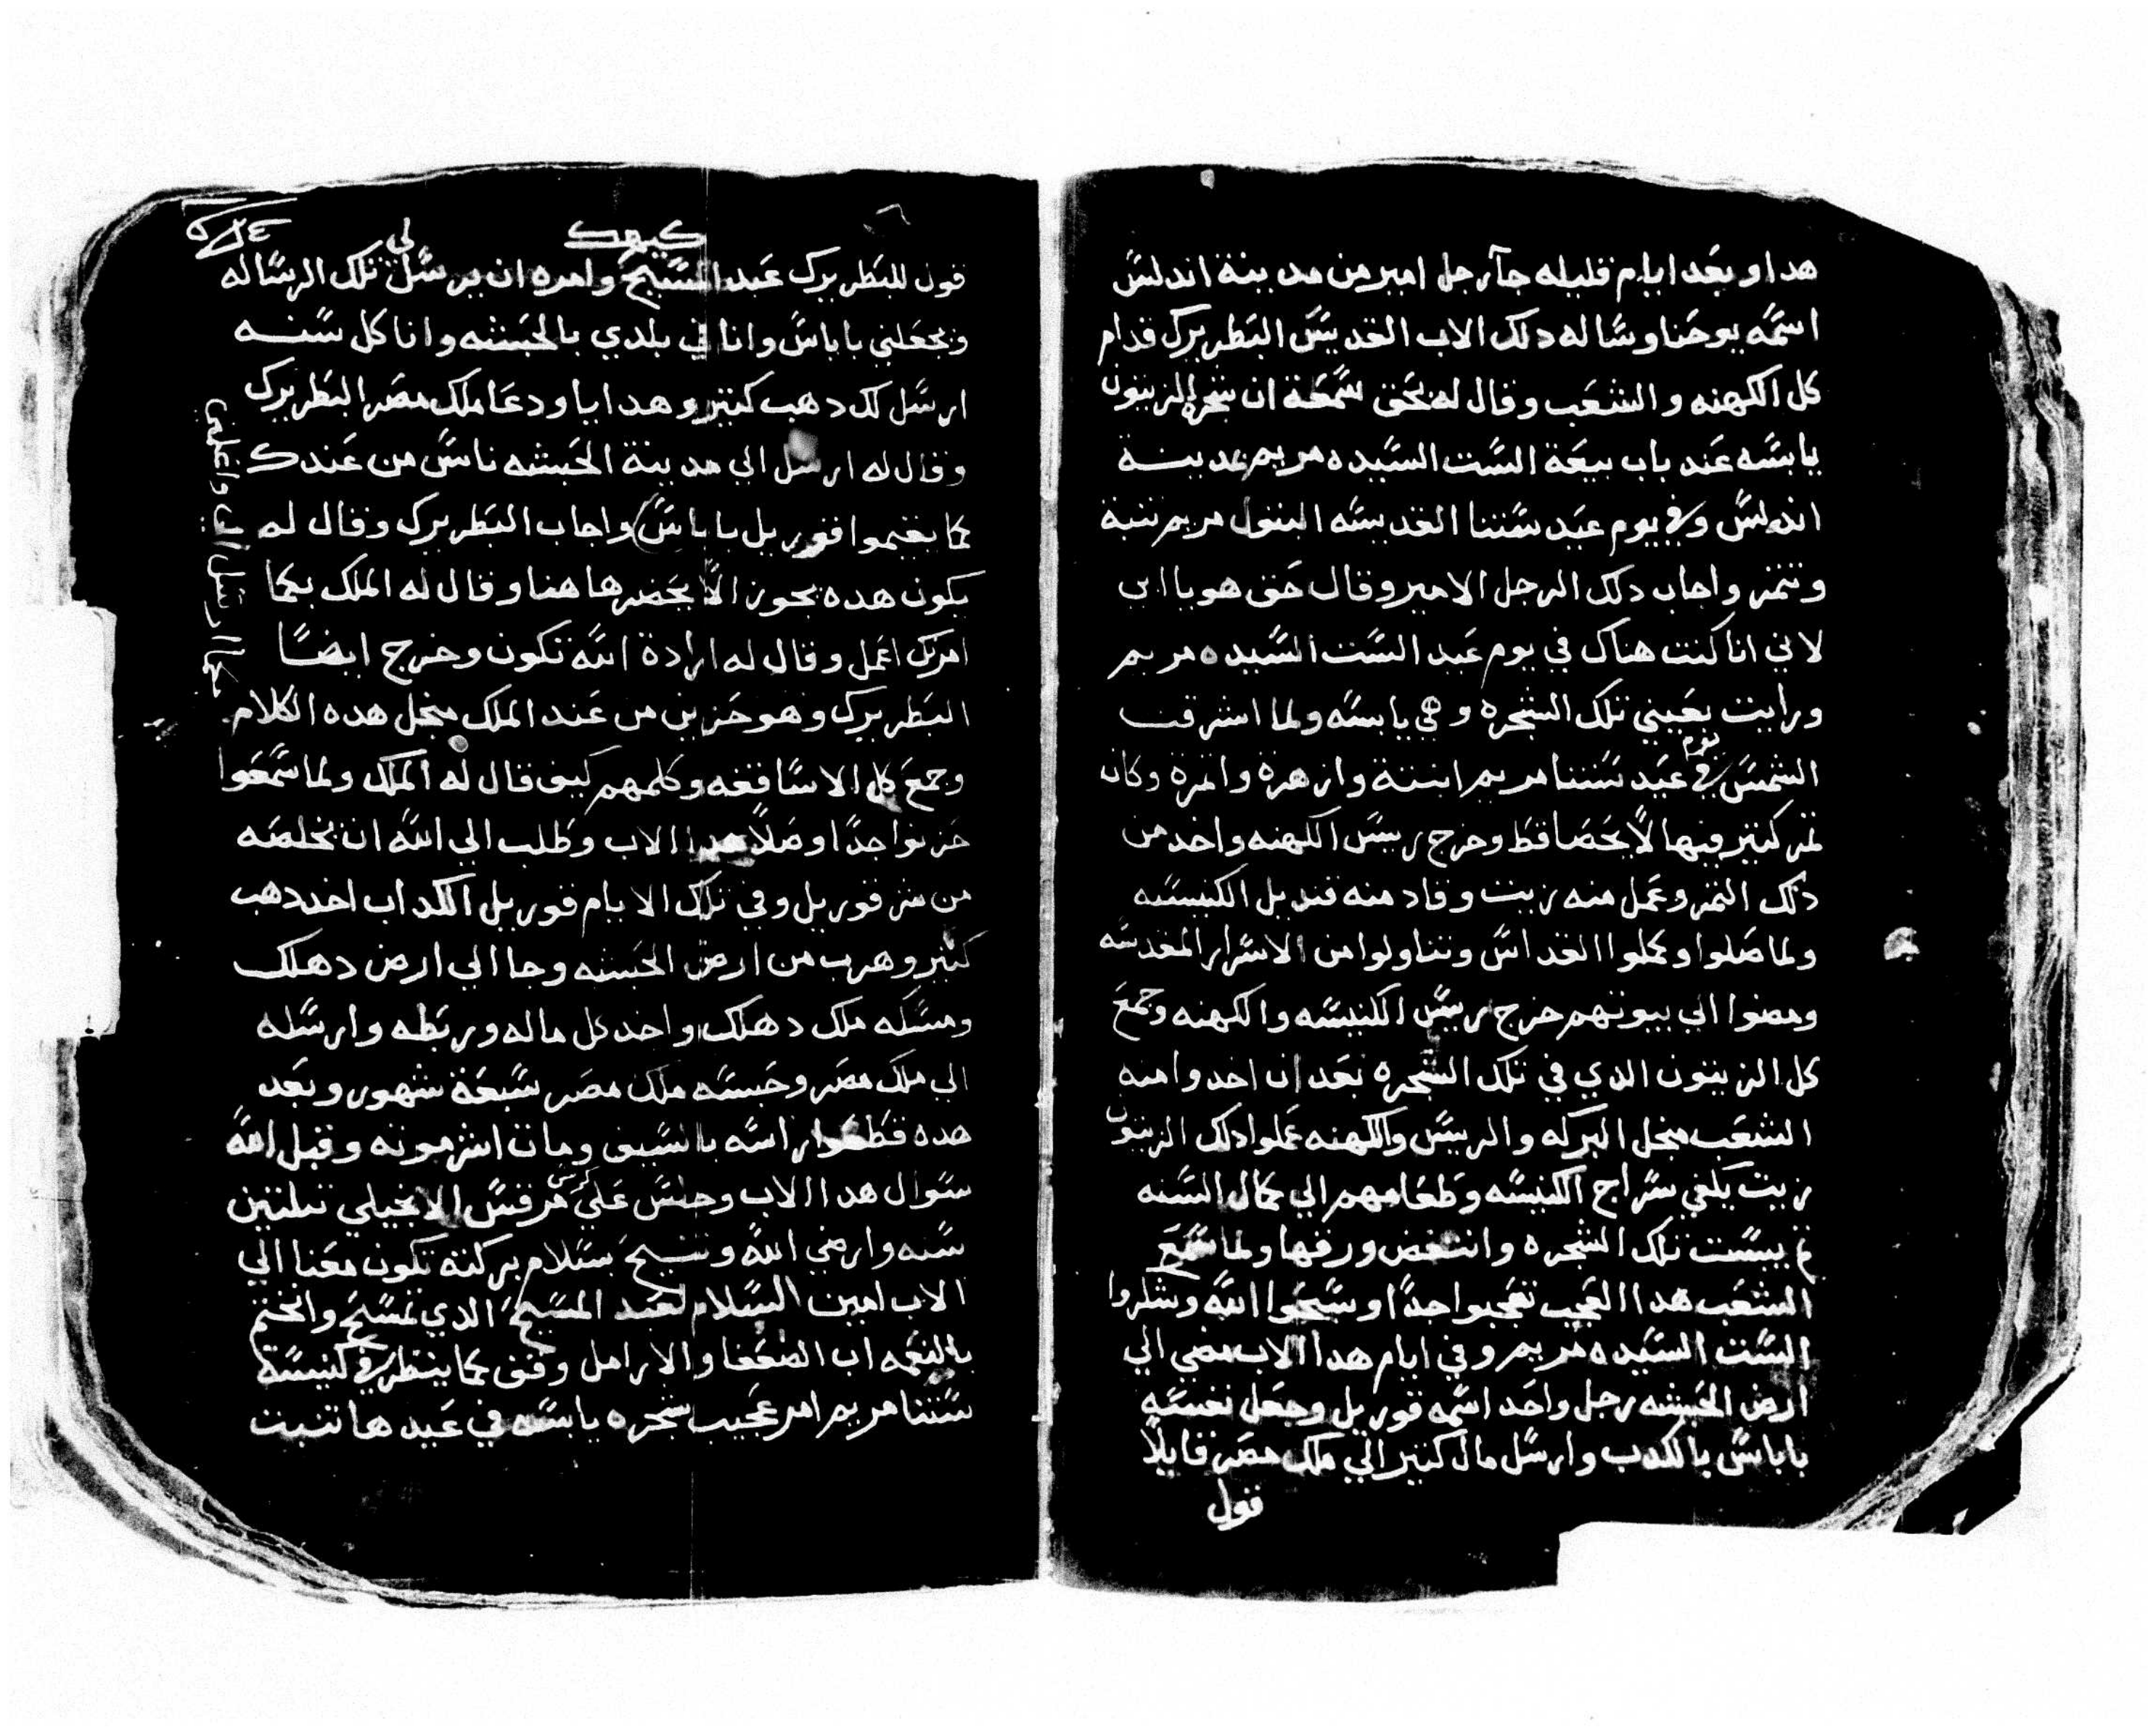 هدا وبعَد ايام قليله جآ رجل امير من مدينة اندلسَ
اسَمَه يوحَنا وسَاله دلك الاب القديسَ البَطريرك قدام
كل الكهنه والشعَب وقال له بحَق سَمعَة ان شجرة الزيتون
يابسَه عَند باب بيعَة السَت السَيده مريم بمدينة
اندلسَ وفي يوم عيَد سَتنا القديسَه البتول مريم تنبة
وتتمر واجاب دلك الرجل الامير وقال حَق هو يا ابي
لاني انا كنت هناك في يوم عَيد السَت السَيده مريم
ورايت بعَيني تلك الشجره وهي يابسَه ولما اشرقت
الشمسَ في يوم عَيد سَتنا مريم انبتة وازهرة واتمرة وكان
تمر كتير فيها لا يحَصَا قط وخرج رييسَ الكهنه واخد من
دلك التمر وعَمل منه زيت وقاد منه قنديل الكنيسَه
ولما صَلوا وكملوا القداسَ وتناولوا من الاسَرار المقدسَه
ومضوا الي بيوتهم خرج رييسَ الكنيسَه والكهنه وجمعَ
كل الزيتون الدي في تلك الشجره بعَد ان اخدوا منه
الشعَب منجل البركه والرييسَ والكهنه عَملوا دلك الزيتون
زيت يكفي سَراج الكنيسَه وطعَامهم الي كمال السَنه
تم يبسَت تلك الشجره وانتفض ورقها ولما سَمعَ
الشعَب هدا العَجب تعَجبوا جدًا وسَبحَوا اللَّه وشكروا
السَت السَيده مريم وفي ايام هدا الاب مضي الي
ارض الحَبشه رجل واحَد اسَمه قوريل وجعَل نفسَه
باباسَ بالكدب وارسَل مال كتير الي ملك مصَر قايلاً
قول
كيهك
قول للبَطريرك عَبد المسَيحَ وامره ان يرسَل لي تلك الرسَاله
ويجعَلني باباسَ وانا في بلدي بالحَبشه وانا كل سَنه
ارسَل لك دهب كتير وهدايا ودعَا ملك مصَر البَطريرك
وقال له ارسَل الي مدينة الحَبشه ناسَ من عَندك
كما يقيموا قوريل باباسَ واجاب البَطريرك وقال لم
يكون هده يجوز الاَّ يحَضر هاهنا وقال له الملك بكما
امرتك اعَمل وقال له ارادة اللَّه تكون وخرج ايضًا
البَطريرك وهو حَزين من عَند الملك منجل هده الكلام
وجمعَ كل الاسَاقفه وكلمهم كيف قال له الملك ولما سَمعَوا
حَزنوا جدًا وصَلاَّ هدا الاب وطَلب الي اللَّه ان يخلصَه
من شر قوريل وفي تلك الايام قوريل الكداب اخد دهب
كتير وهرب من ارض الحَبشه وجا الي ارض دهلك
ومسَكه ملك دهلك واخد كل ماله وربَطه وارسَله
الي ملك مصَر وحَبسَه ملك مصَر سَبعَة شهور وبعَد
هده قطَعَوا راسَه بالسَيف ومات اشر موته وقبل اللَّه
سَوال هدا الاب وجلسَ عَلي كرسي مرقسَ الانجيلي تلتين
سَنه وارضي اللَّه وتنيحَ بسَلام بركتة تكون معَنا الي
الابد امين السَلام لعَبد المسَيحَ الدي تمسَحَ وانختم
بالنعَمه اب الضعَفا والارامل وقف كما ينتظر في كنيسَة
سَتنا مريم امر عَجيب شجره يابسَه في عَيدها تنبت